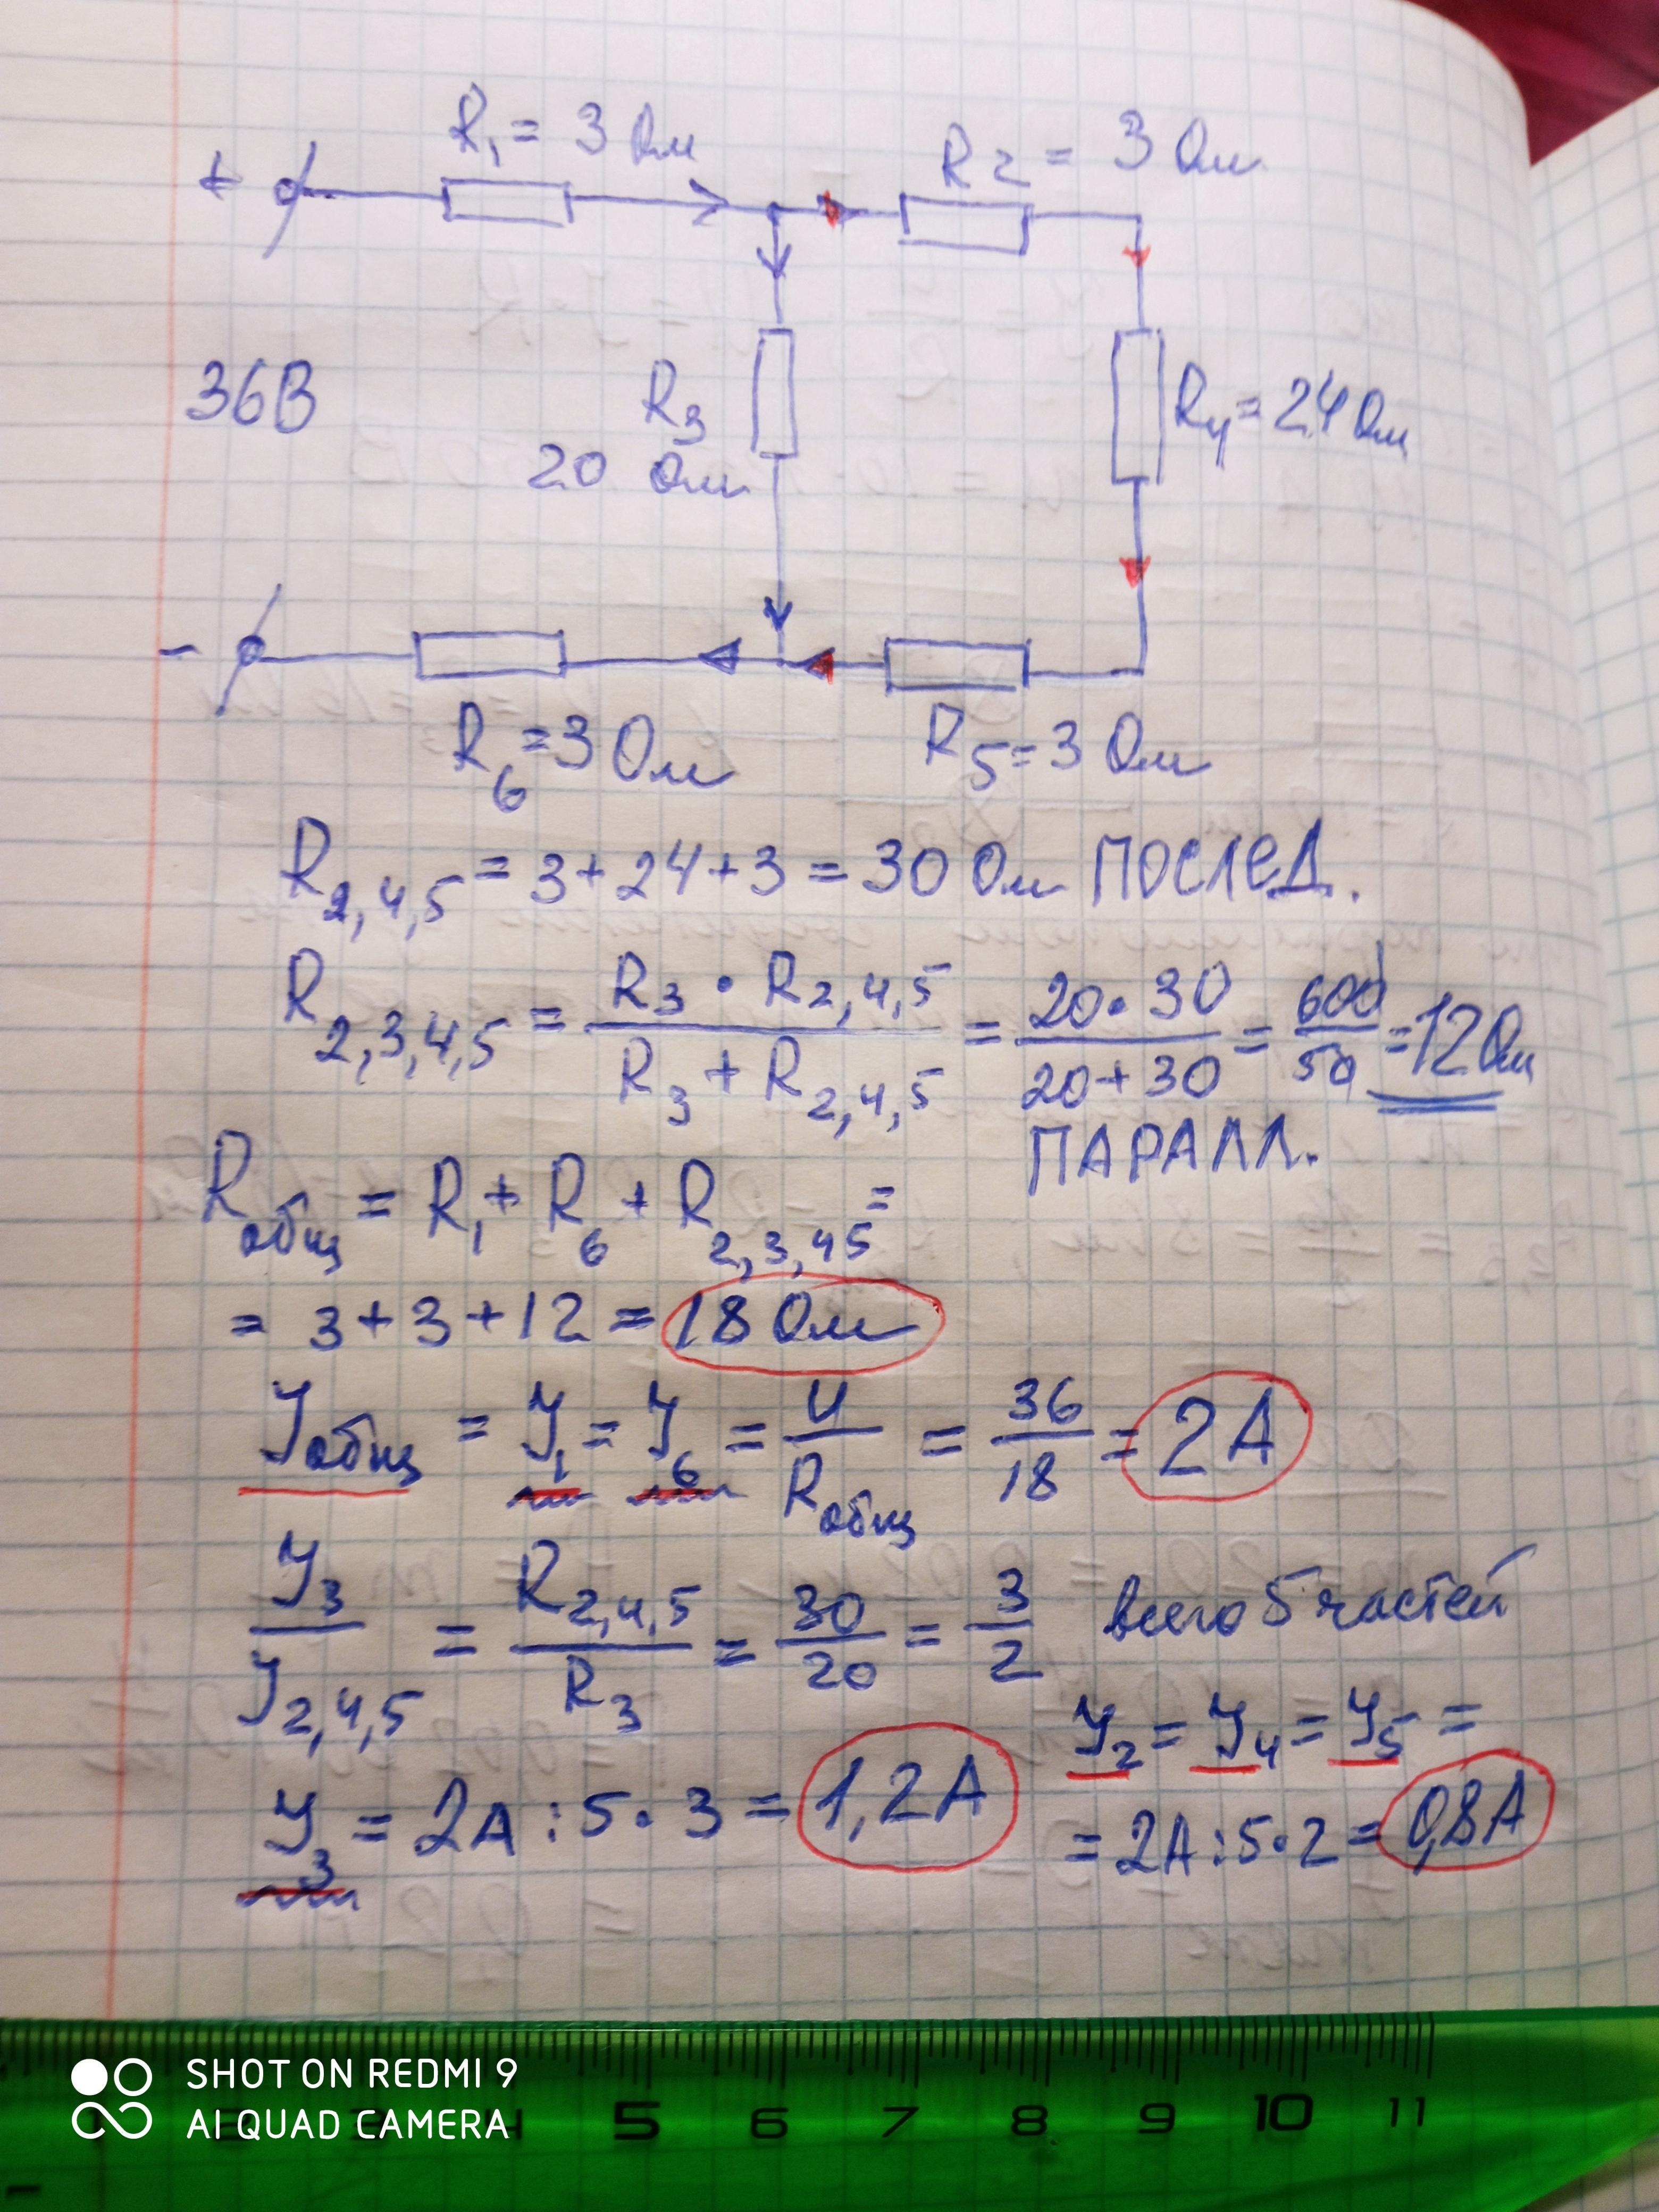 R₁ = 3 Ом
R₂ = 3 Ом
+
36В
R₃
20 Ом
R₄ = 24 Ом
-
R₆ = 3 Ом
R₅ = 3 Ом
R₂,₄,₅ = 3 + 24 + 3 = 30 Ом ПОСЛЕД.
R₂,₃,₄,₅ = R₃ · R₂,₄,₅ / R₃ + R₂,₄,₅ = 20 · 30 / 20 + 30 = 600 / 50 = 12 Ом
ПАРАЛЛ.
Rобщ = R₁ + R₆ + R₂,₃,₄₅ =
= 3 + 3 + 12 = 18 Ом
Jобщ = J₁ = J₆ = U / Rобщ = 36 / 18 = 2А
J₃ / J₂,₄,₅ = R₂,₄,₅ / R₃ = 30 / 20 = 3 / 2 всего 5 частей
J₂ = J₄ = J₅ =
J₃ = 2А : 5 · 3 = 1,2А
= 2А : 5 · 2 = 0,8А
SHOT ON REDMI 9
AI QUAD CAMERA
5 6 7 8 9 10 11